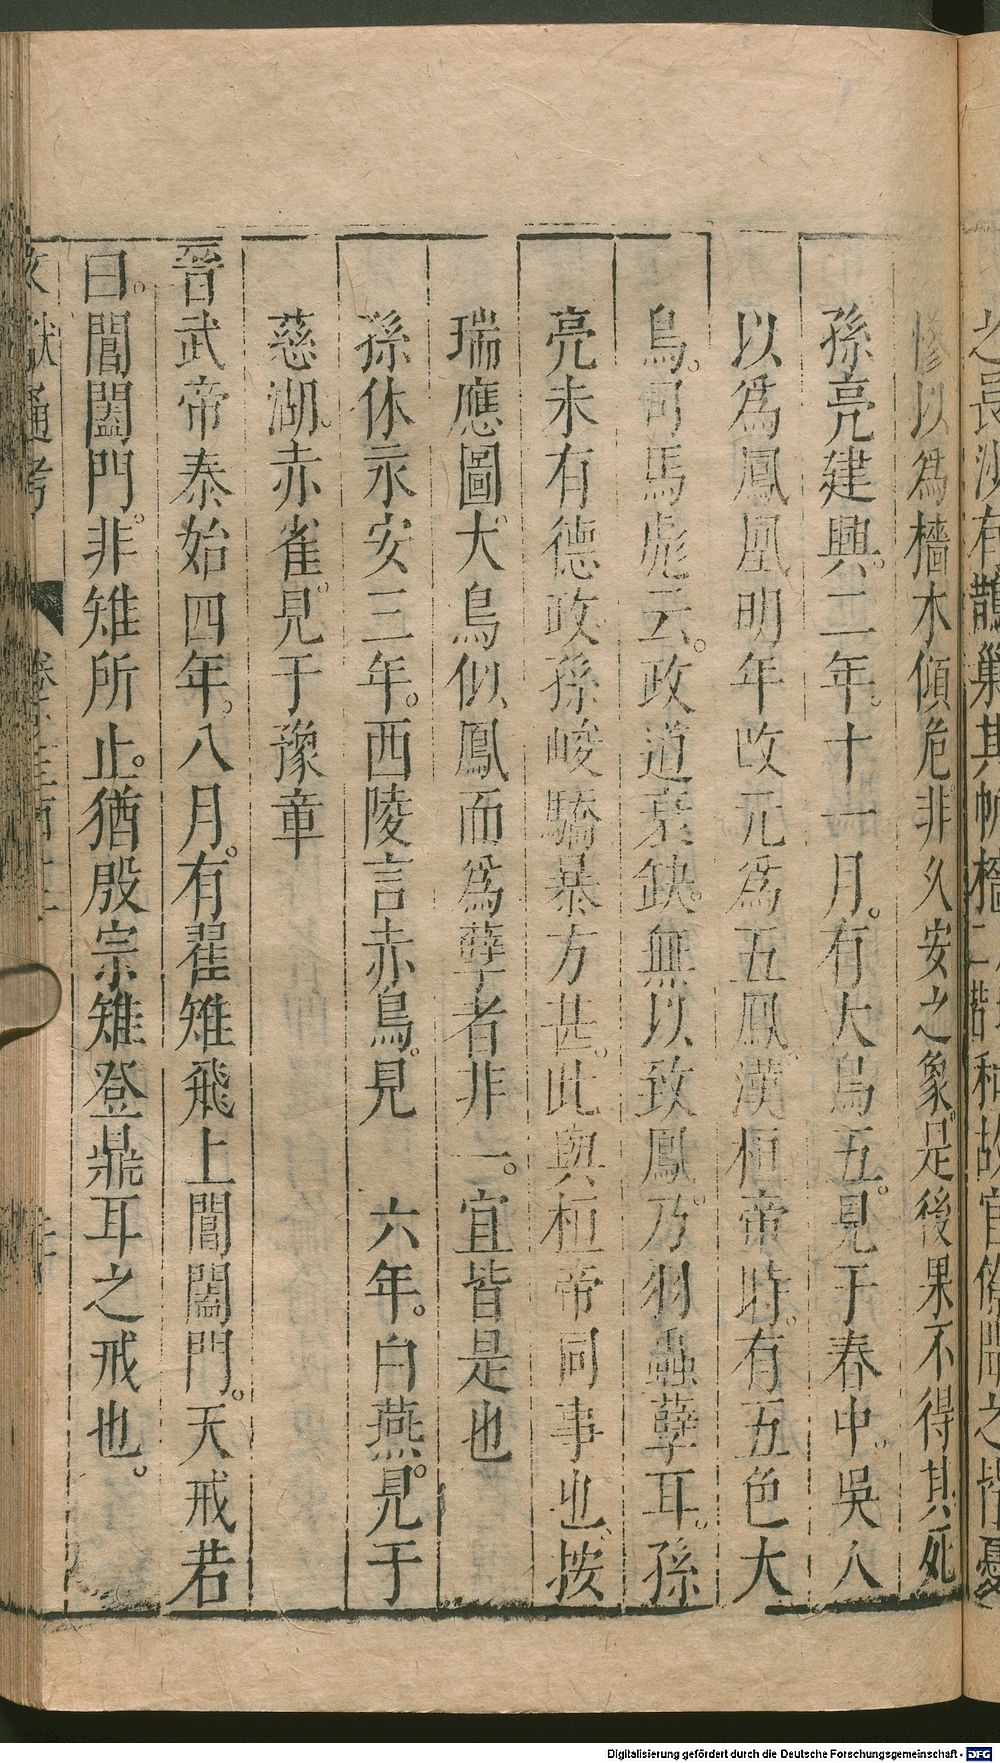 慘以爲檣木傾危非久安之象。是後果不得其死
孫亮建興。二年。十一月。有大鳥五。見于春中。吳人
以爲鳳凰明年改元爲五鳳。漢桓帝時。有五色大
鳥。司馬彪云。政道衰缺。無以致鳳。乃羽蟲孽耳。孫
亮未有德政孫峻驕暴方甚。此與桓帝同事也。按
瑞應圖。大鳥似鳳而爲孽者非一。宜皆是也
孫休永安三年。西陵言赤烏。見　六年。白燕。見于
慈湖。赤雀。見于豫章
晉武帝泰始四年。八月。有翟雉飛上閶闔門。天戒若
曰。閶闔門。非雉所止。猶殷宗雉登鼎耳之戒也。
獻通考
Digitalisierung gefördert durch die Deutsche Forschungsgemeinschaft - DFG